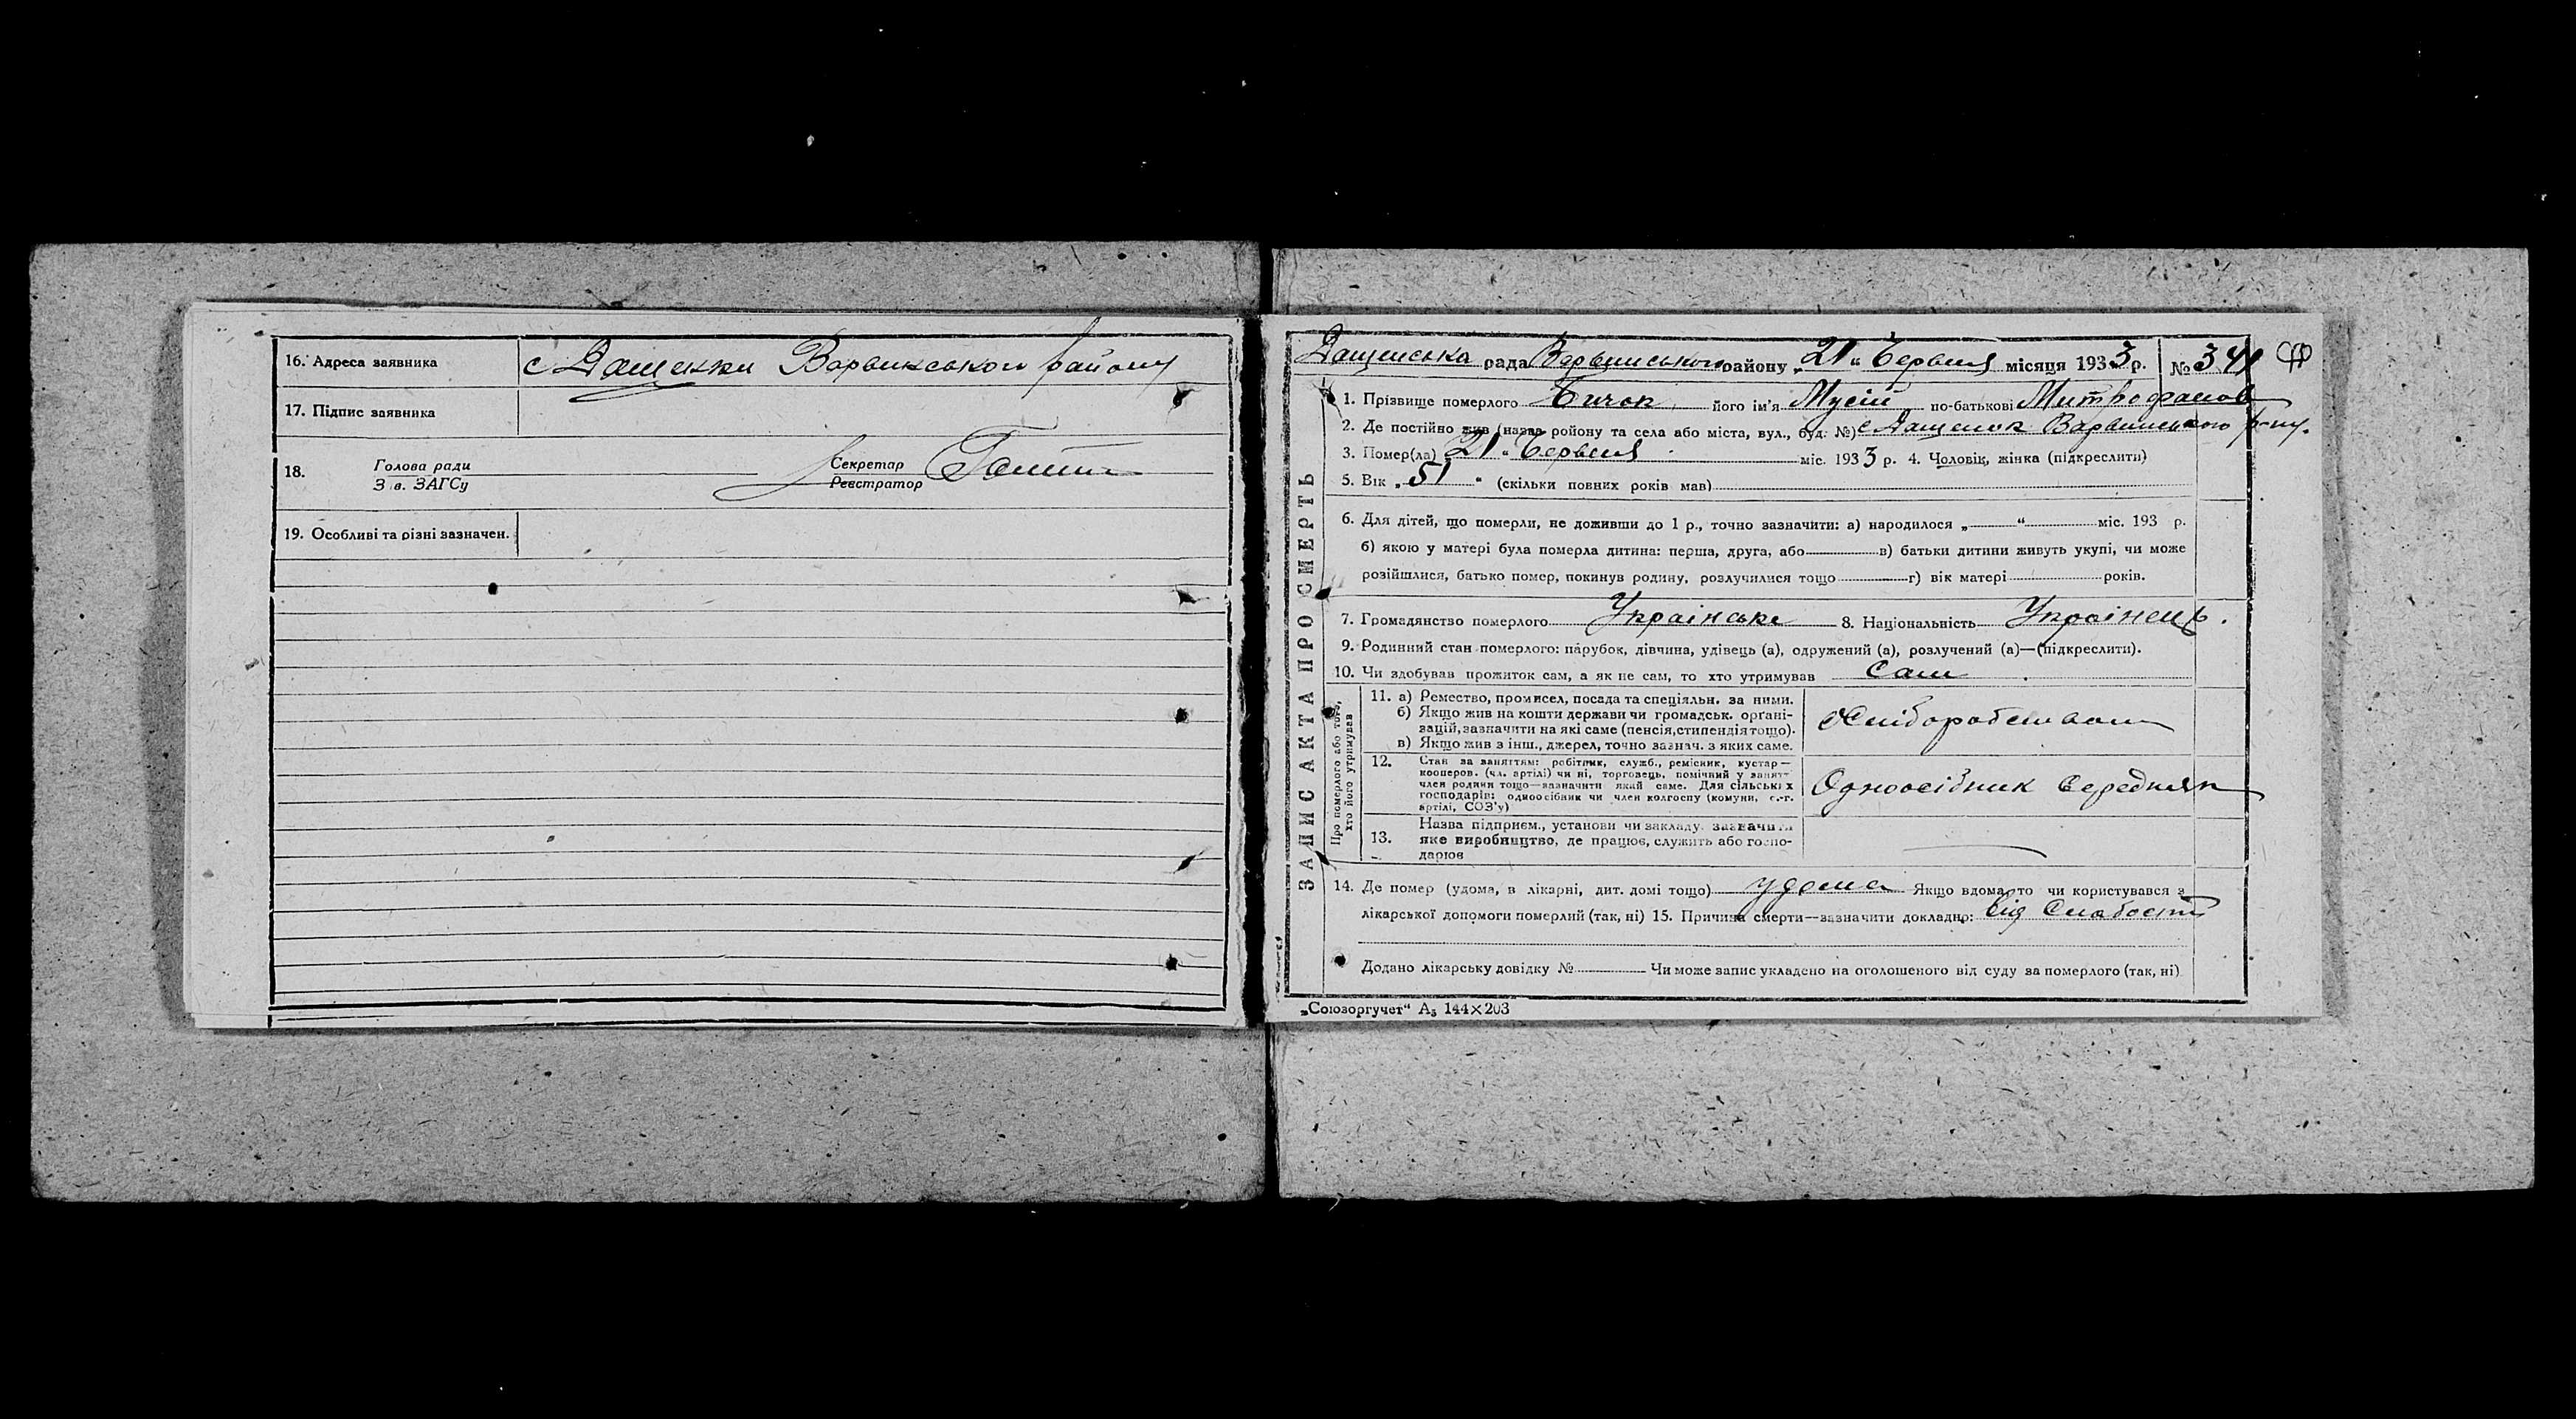 16. Адреса заявника с Дащенки Варвинського району
17. Підпис заявника
18. Голова ради Секретар
З в. ЗАГСу Реєстратор
19. Особливі та різні зазначен.
ЗАПИС АКТА ПРО СМЕРТЬ
Дащенська рада Варвинського району „21“ Червня місяця 1933 р. № 341
1. Прізвище померлого Бичок його ім'я Мусій по-батькові Митрофанов
2. Де постійно жив (назва ройону та села або міста, вул., буд. №) с Дащенок Варвинського р-ну.
3. Помер(ла) „21“ Червня міс. 1933 р. 4. Чоловік, жінка (підкреслити)
5. Вік „51“ (скільки повних років мав)
6. Для дітей, що померли, не доживши до 1 р., точно зазначити: а) народилося „ “ міс. 193 р.
б) якою у матері була померла дитина: перша, друга, або в) батьки дитини живуть укупі, чи може
розійшлися, батько помер, покинув родину, розлучилися тощо г) вік матері років.
7. Громадянство померлого Українське 8. Національність Українець.
9. Родинний стан померлого: парубок, дівчина, удівець (а), одружений (а), розлучений (а)—(підкреслити).
10. Чи здобував прожиток сам, а як не сам, то хто утримував Сам
Про померлого або того,
хто його утримував
11. а) Ремество, промисел, посада та спеціяльн. за ними.
б) Якщо жив на кошти держави чи громадськ. орґані-
зацій, зазначити на які саме (пенсія, стипендія тощо).
в) Якщо жив з інш., джерел, точно зазнач. з яких саме.
Хліборобством
12. Стан за заняттям: робітник, служб., ремісник, кустар—
кооперов. (чл. артілі) чи ні, торговець, помічний у занят-
член родини тощо—зазначити який саме. Для сільських
господарів: одноосібник чи член колгоспу (комуни, с.-г.
артілі, СОЗ'у)
Одноосібник Середняк
13. Назва підприєм., установи чи закладу. зазначити
яке виробництво, де працює, служить або госпо-
дарює
14. Де помер (удома, в лікарні, дит. домі тощо) удома Якщо вдома, то чи користувався з
лікарської допомоги померлий (так, ні) 15. Причина смерти—зазначити докладно: від Слабости
Додано лікарську довідку № Чи може запис укладено на оголошеного від суду за померлого (так, ні)
„Союзоргучет“ А₅ 144×203